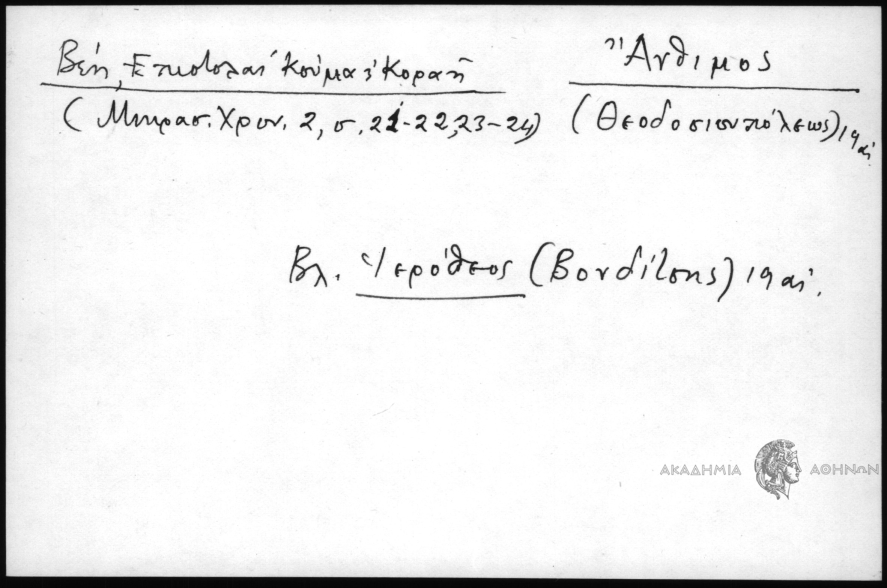 Βέη, Επιστολαί Κούμα & Κοραή
(Μικρασ. Χρον. 2, σ. 21-22, 23-24)
Ἄνθιμος
(Θεοδοσιουπόλεως) 19 αἰ.
Βλ. Ἱερόθεος (Βουδίτσης) 19 αἰ.
ΑΚΑΔΗΜΙΑ ΑΘΗΝΩΝ